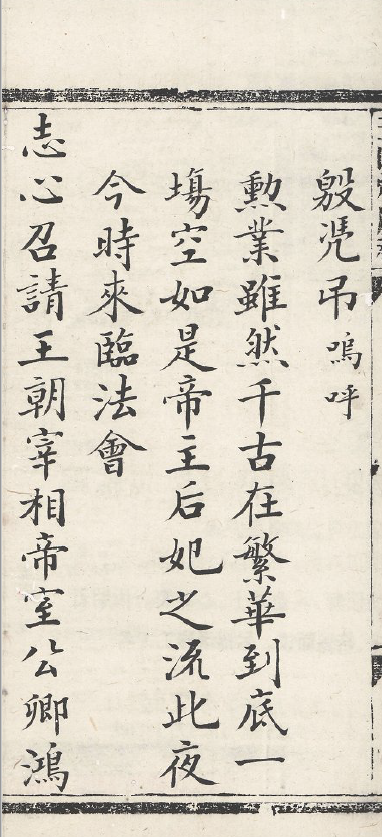 殷凴吊嗚呼
勲業雖然千古在繁華到底一
塲空如是帝主后妃之流此夜
今時來臨法會
志心召請王朝宰相帝室公卿鴻